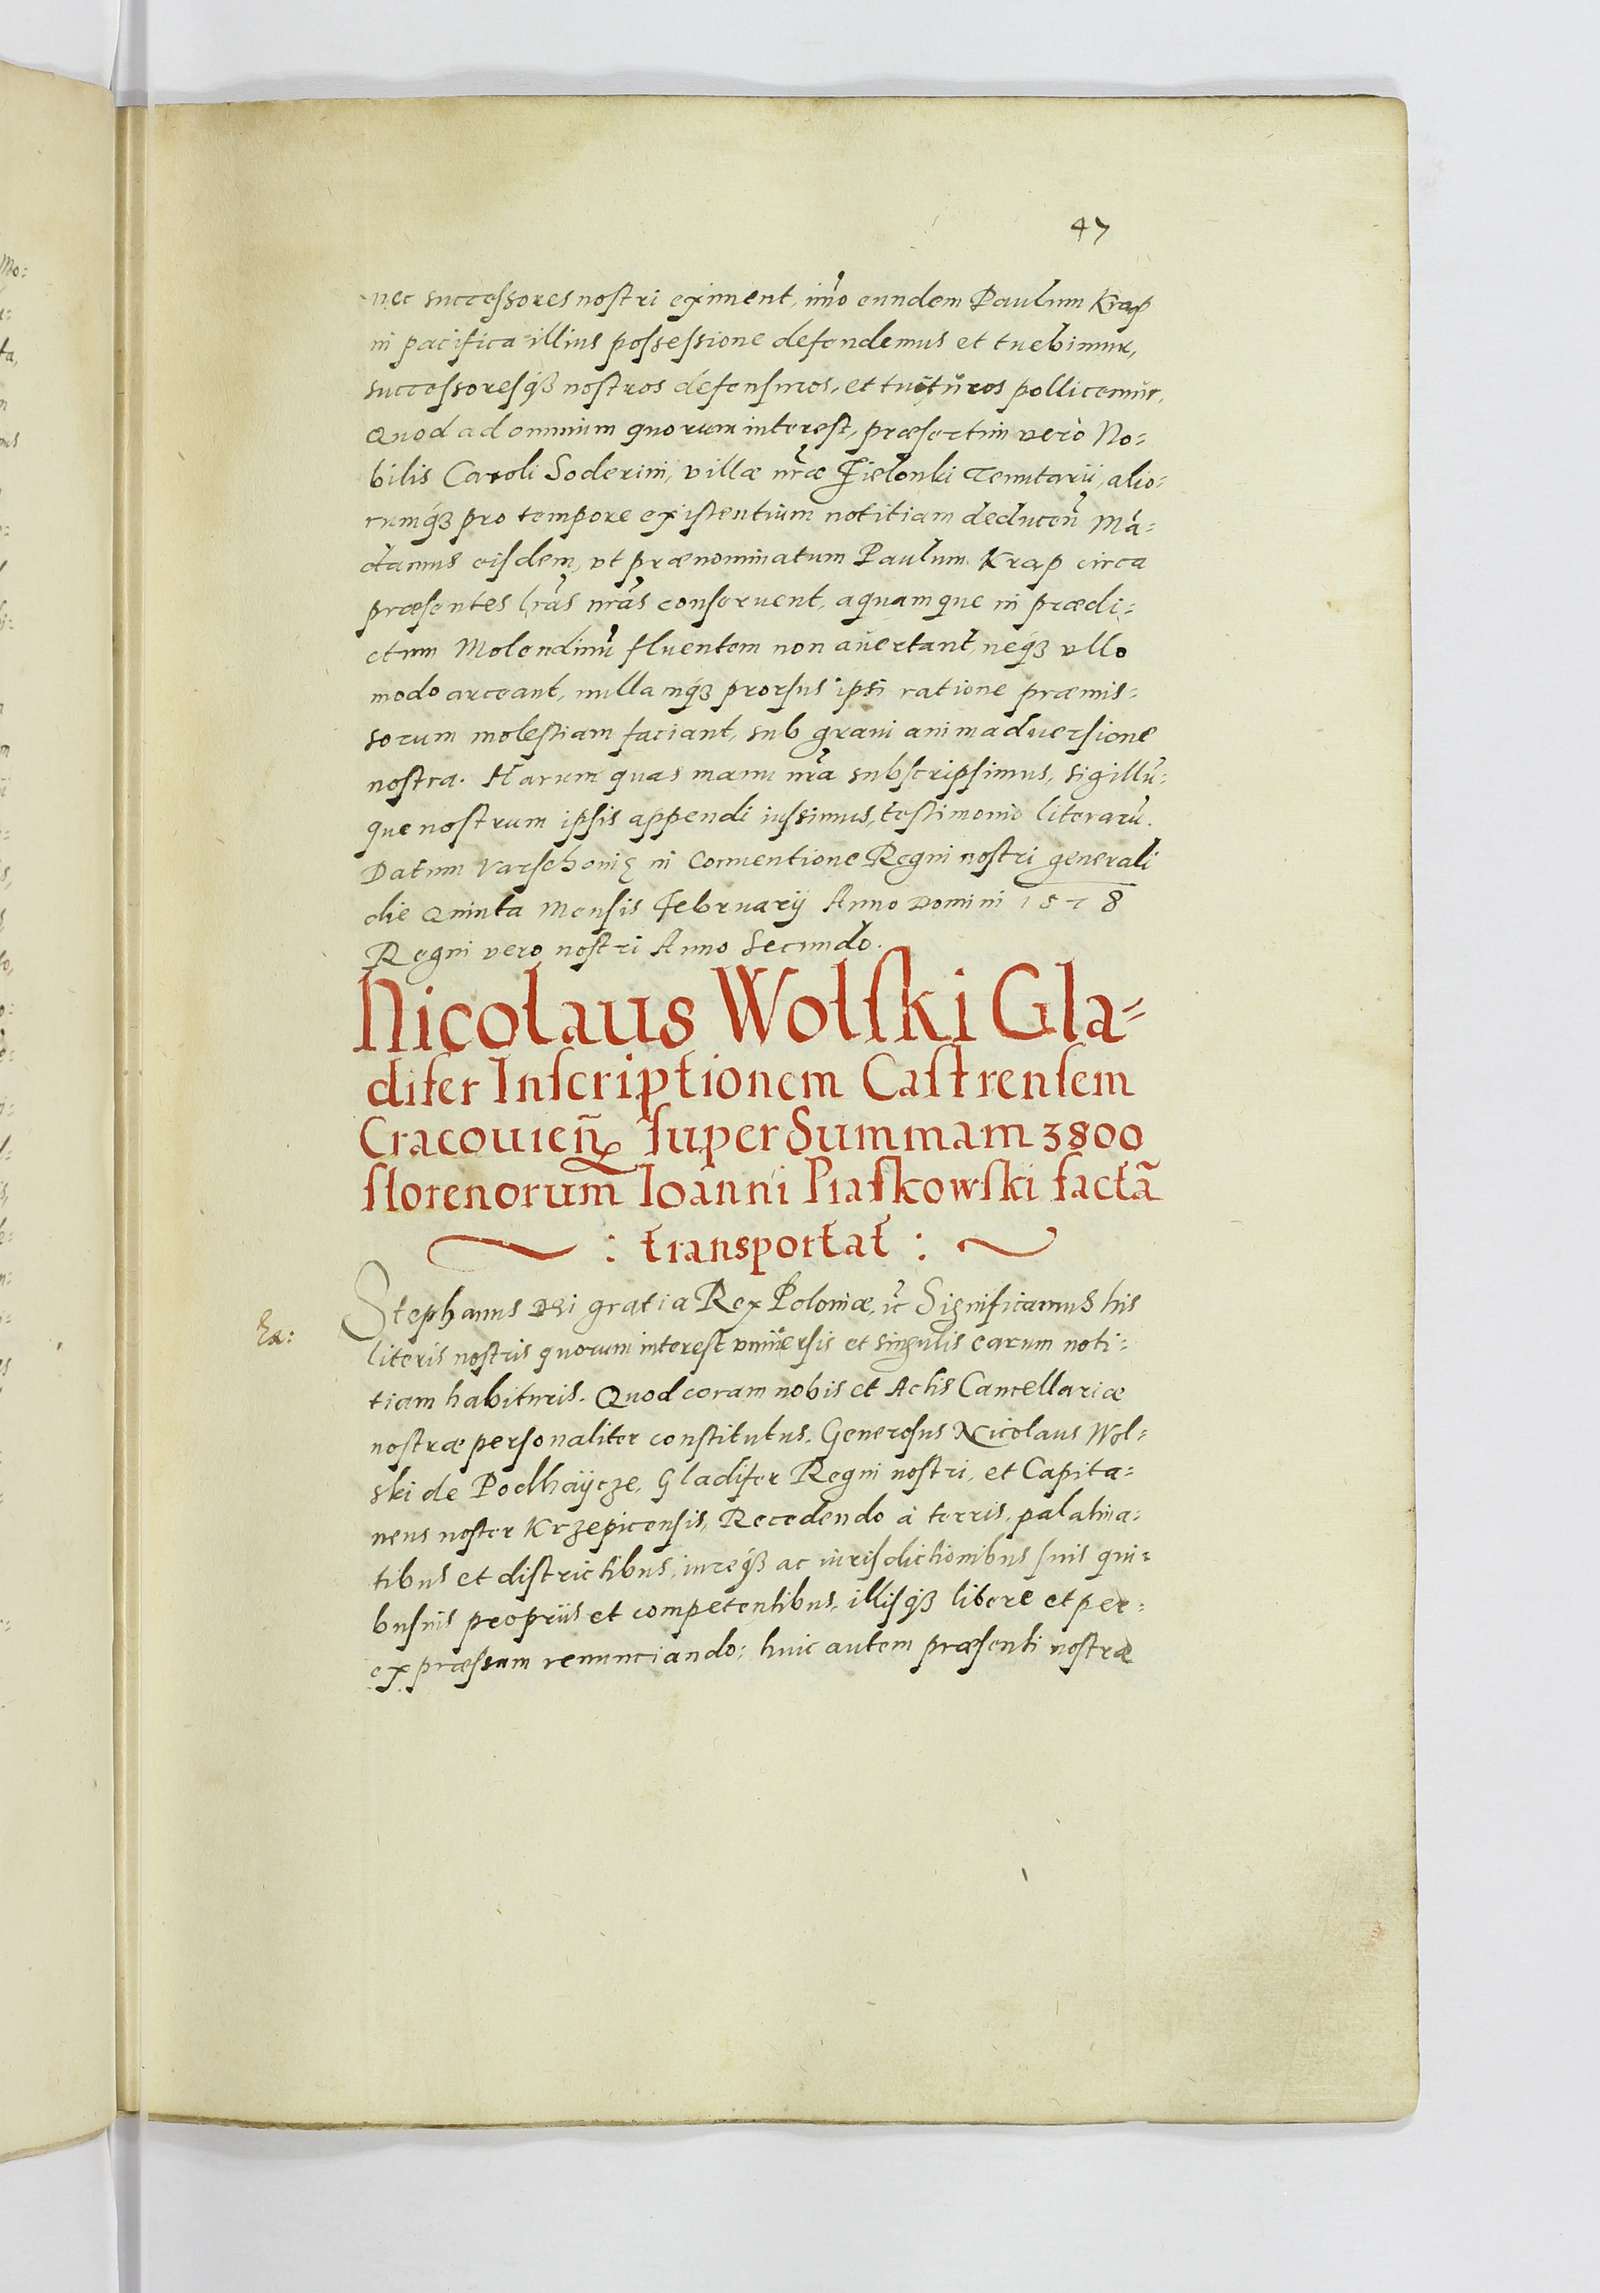 47
nec successores nostri eximent, imo eundem Paulum Krap
in pacifica illius possessione defendemus et tuebimur,
successoresq́ꝫ nostros defensuros, et tuituros pollicemur.
Quod ad omnium quorum interest, præsertim vero No=
bilis Caroli Soderini, villæ nr̃æ Zielonki Tenutarii, alio=
rumq́ꝫ pro tempore existentium notitiam deducen̄ Mā=
damus eisdem, vt prænominatum Paulum Krap circa
præsentes lr̃as nr̃as conseruent, aquamque in prædi=
ctum Molendinū fluentem non auertant, neq́ꝫ vllo
modo arceant, nullamq́ꝫ prorsus ipsi ratione præmis=
sorum molestiam faciant, sub graui animaduersione
nostra. Harum quas manu nr̃a subscripsimus, sigillū=
que nostrum ipsis appendi iussimus, testimonio literarū.
Datum Varschouię in Conuentione Regni nostri generali
die Quinta Mensis Februarij Anno Domini 1578
Regni vero nostri Anno Secundo.
Nicolaus Wolski Gla=
difer Inscriptionem Castrensem
Cracouien̄ super Summam 3800
florenorum Ioanni Piaskowski factā
: transportat :
Ex:
Stephanus Dei gratia Rex Poloniæ, ꝛc̃ Significamus his
literis nostris quorum interest vniuersis et singulis earum noti=
tiam habituris. Quod coram nobis et Actis Cancellariæ
nostræ personaliter constitutus, Generosus Nicolaus Wol=
ski de Podhaijcze, Gladifer Regni nostri, et Capita=
neus noster Krzepicensis, Recedendo à terris, palatina=
tibus et districtibus, iureq́ꝫ ac iurisdictionibus suis qui=
busuis proprijs et competentibus, illisq́ꝫ libere et per=
expræssum renunciando: huic autem præsenti nostræ